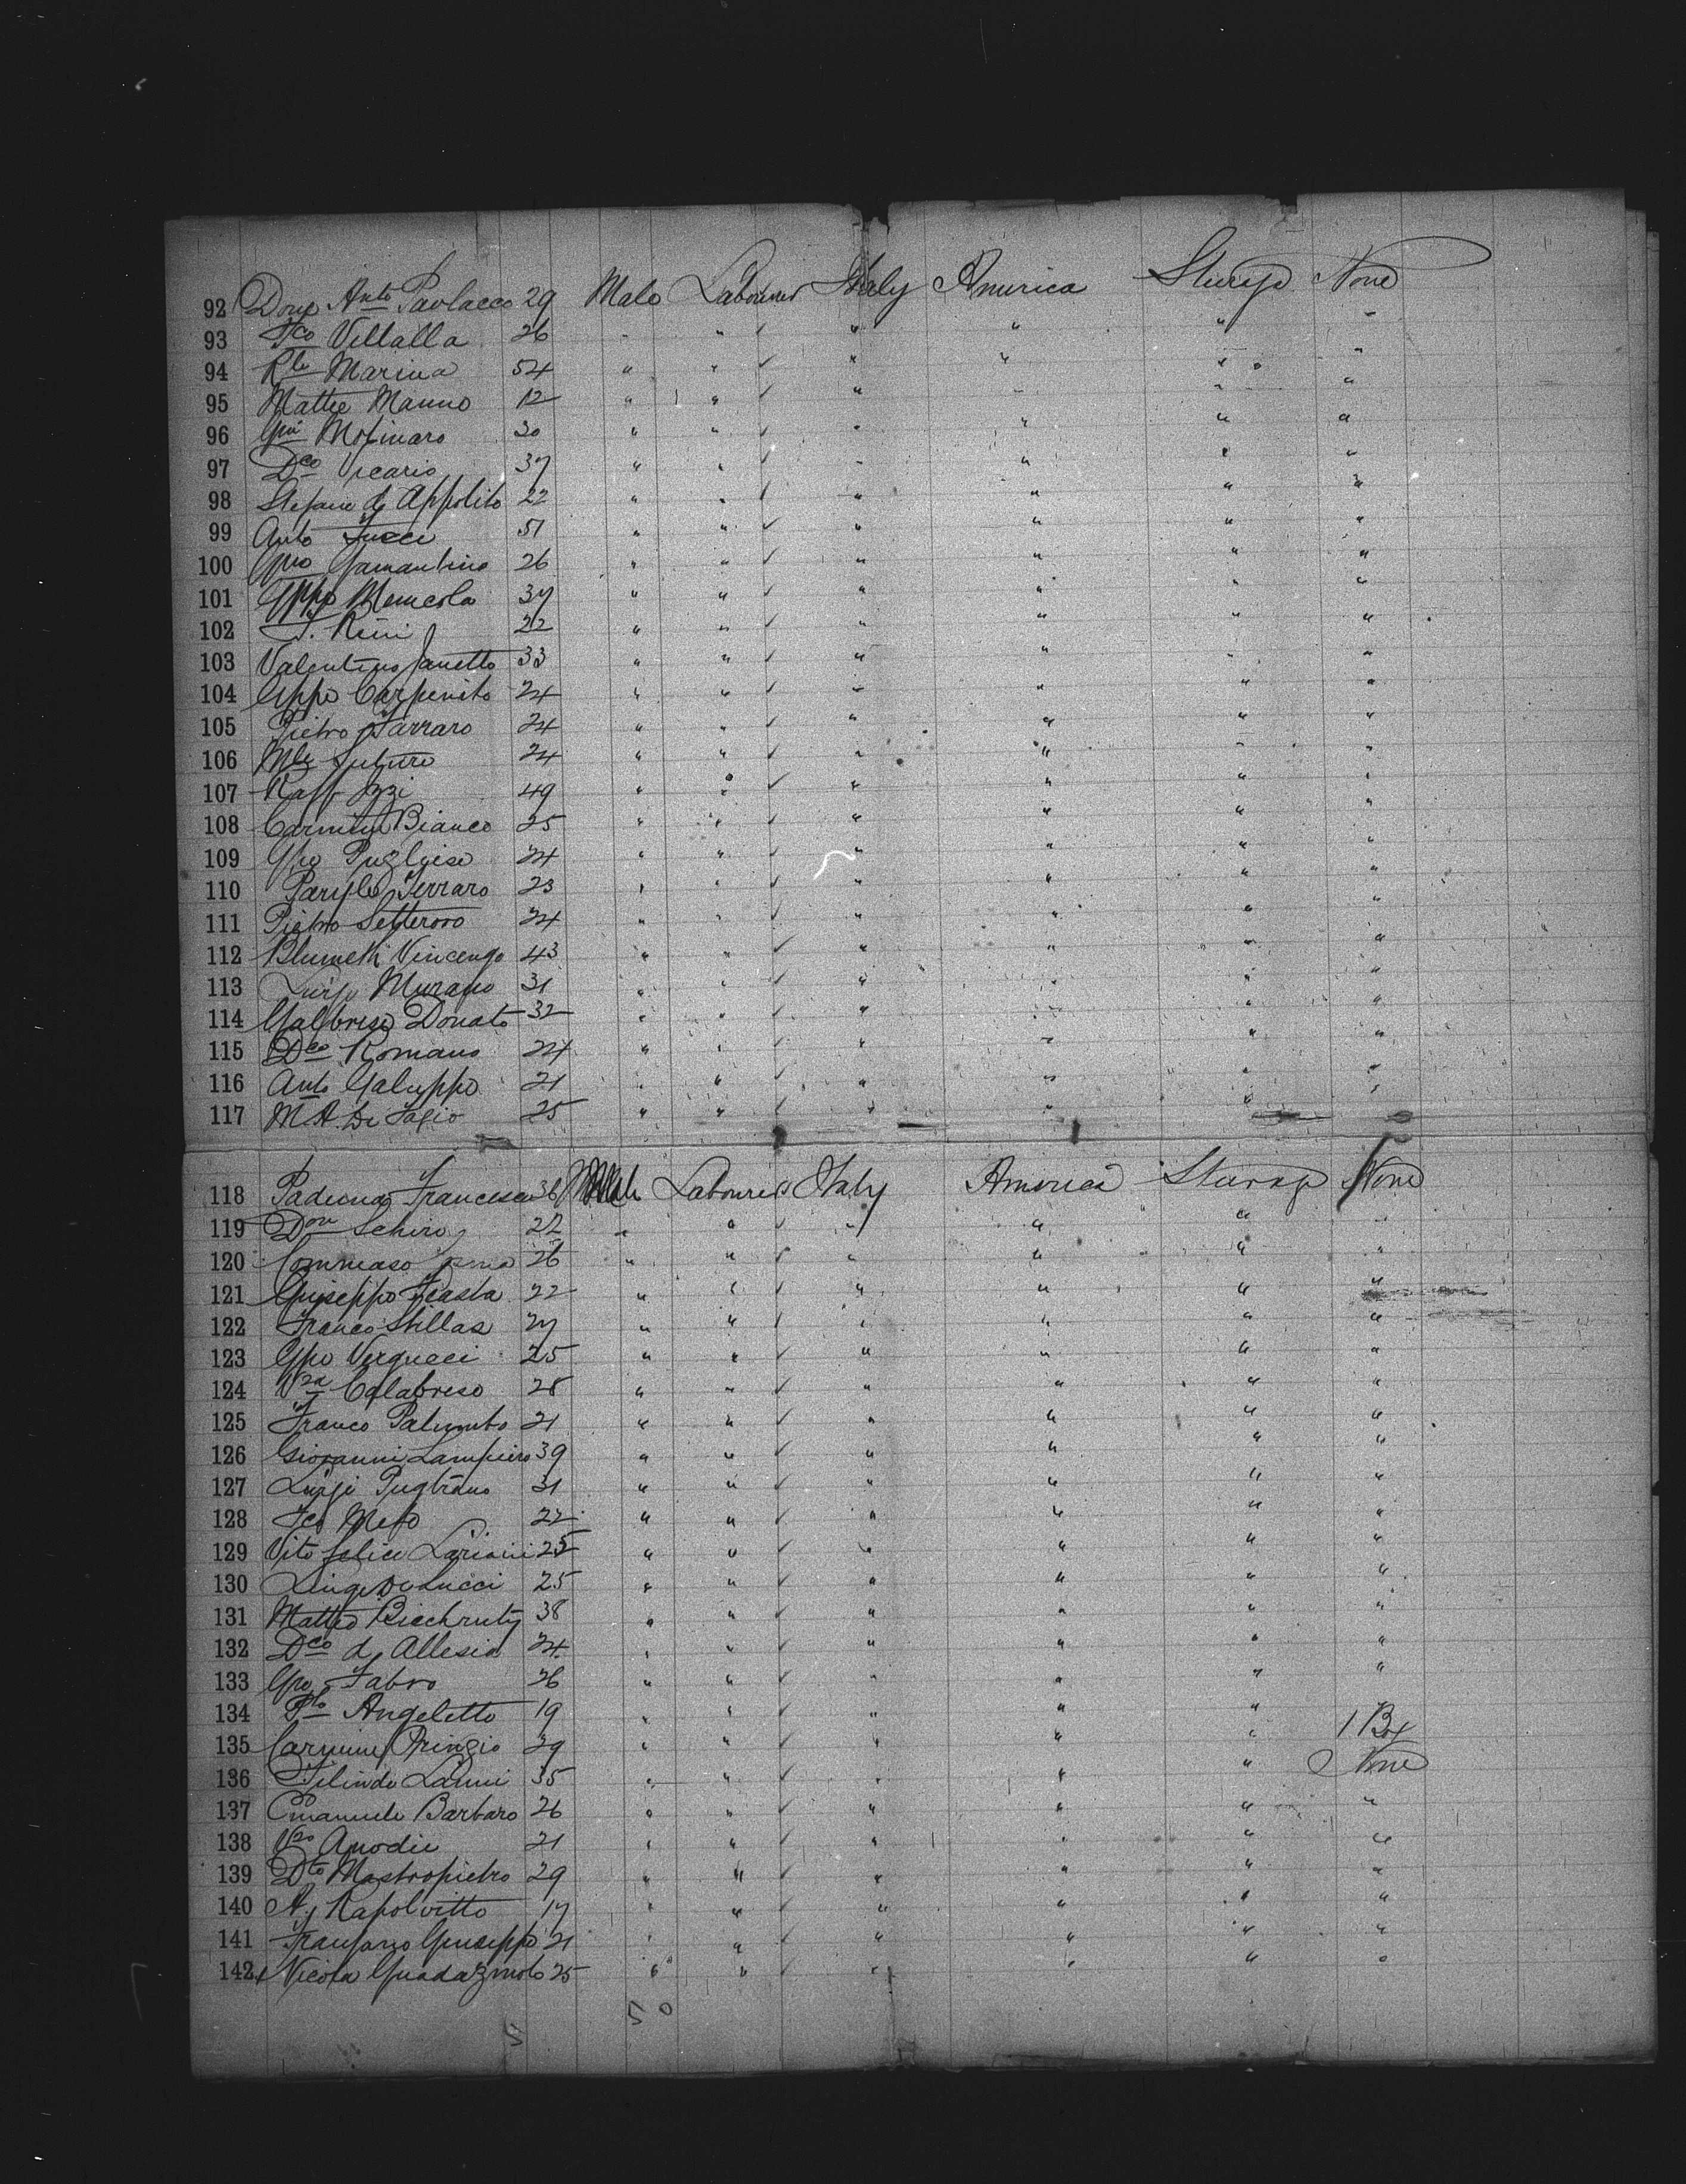 92 Dom Anto Paolacco 29 Male Labourer Italy America Steerage None
93 Fco Villalla 26 " " ✓ " " " "
94 Rle Marina 54 " " ✓ " " " "
95 Matteo Manno 12 " " ✓ " " " "
96 Gni Mofinaro 30 " " ✓ " " " "
97 Dco Vicario 37 " " ✓ " " " "
98 Stefano d Appolito 22 " " ✓ " " " "
99 Anto Fucci 51 " " ✓ " " " "
100 26 " " ✓ " " " "
101 Gppe Menicola 37 " " ✓ " " " "
102 F. Rini 22 " " ✓ " " " "
103 Valentino Janetto 33 " " ✓ " " " "
104 Gppe Carpenito 24 " " ✓ " " " "
105 Pietro Farraro 24 " " ✓ " " " "
106 Mle 24 " " ✓ " " " "
107 Raff Izzi 49 " " ✓ " " " "
108 Carmine Bianco 25 " " ✓ " " " "
109 Gpe Pugliese 24 " " ✓ " " " "
110 Ferraro 23 " " ✓ " " " "
111 Pietro 24 " " ✓ " " " "
112 Vincenzo 43 " " ✓ " " " "
113 Luigi Murano 31 " " ✓ " " " "
114 Donato 32 " " ✓ " " " "
115 Dco Romano 24 " " ✓ " " " "
116 Anto Galuppo 21 " " ✓ " " " "
117 M.A. De Fazio 25 " " ✓ " " " "
118 Francesco 36 Male Labourer Italy America Steerage None
119 Dom Schiro 22 " " ✓ " " " "
120 Tommaso 26 " " ✓ " " " "
121 Giuseppe 22 " " ✓ " " " "
122 Franco Stillas 27 " " ✓ " " " "
123 Gpe Vergucci 25 " " ✓ " " " "
124 Vza Calabreso 28 " " ✓ " " " "
125 Franco Palumbo 21 " " ✓ " " " "
126 Giovanni Lampiero 39 " " ✓ " " " "
127 Luigi Pugliano 31 " " ✓ " " " "
128 Fco Mefo 22 " " ✓ " " " "
129 Vito Felice Lariani 25 " " ✓ " " " "
130 Luigi De Lucci 25 " " ✓ " " " "
131 Matteo 38 " " ✓ " " " "
132 Dco d Allesio 24 " " ✓ " " " "
133 Gpe Fabro 26 " " ✓ " " " "
134 Angeletto 19 " " ✓ " " " "
135 Carmine Prinzio 29 " " ✓ " " " 1 Box
136 Filindo Lanni 35 " " ✓ " " " None
137 Emanuele Barbaro 26 " " ✓ " " " "
138 Vzo Amodie 21 " " ✓ " " " "
139 Dto Mastropietro 29 " " ✓ " " " "
140 A. Rapolvitto 17 " " ✓ " " " "
141 Giuseppe 21 " " ✓ " " " "
142 Nicola 25 " " ✓ " " " "
50
5